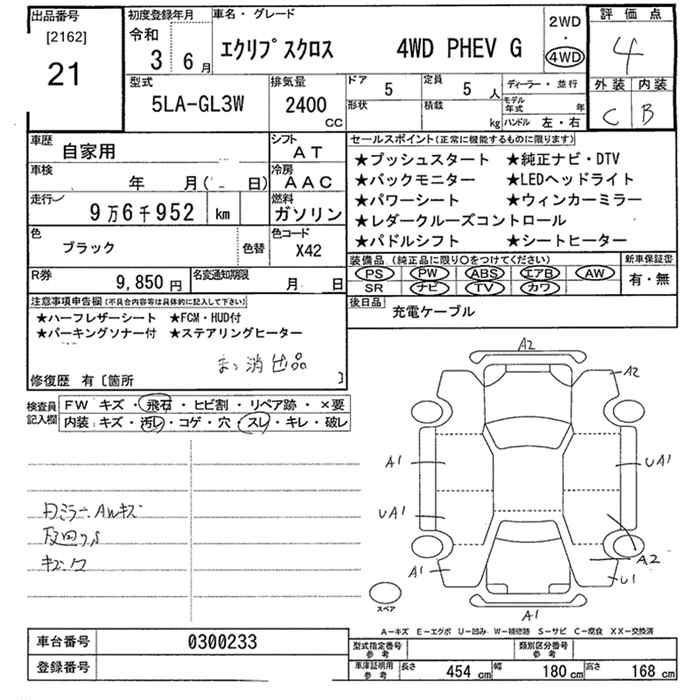 出品番号
[2162]
21
初度登録年月
令和
3 6月
車名・グレード
エクリプスクロス 4WD PHEV G
2WD
・
4WD
評価点
4
外装 内装
C B
型式
5LA-GL3W
排気量
2400
CC
ドア
5
定員
5 人
形状
積載
kg
ディーラー・並行
モデル年式 年
ハンドル 左・右
車歴
自家用
シフト
AT
車検
年 月( 日)
冷房
AAC
走行
9万6千952 km
燃料
ガソリン
色
ブラック
色替
色コード
X42
R券
9,850円
名変通知期限
月 日
セールスポイント(正常に機能するものに限ります)
★プッシュスタート ★純正ナビ・DTV
★バックモニター ★LEDヘッドライト
★パワーシート ★ウィンカーミラー
★レダークルーズコントロール
★パドルシフト ★シートヒーター
装備品 (純正品に限り○をつけてください)
PS PW ABS エアB AW
SR ナビ TV カワ
新車保証書
有・無
後日品
充電ケーブル
注意事項申告欄(不具合内容等は具体的に記入して下さい)
★ハーフレザーシート ★FCM・HUD付
★パーキングソナー付 ★ステアリングヒーター
消出品
修復歴 有〔箇所 〕
検査員記入欄
FW キズ・飛石・ヒビ割・リペア跡・×要
内装:キズ・汚レ・コゲ・穴・スレ・キレ・破レ
ミラー、AWキズ
A2
A2
A1
UA1
UA1
A2
A1
U1
A1
スペア
A-キズ E-エクボ U-凹み W-補修跡 S-サビ C-腐食 XX-交換済
車台番号
0300233
登録番号
型式指定番号
参考
類別区分番号
参考
車庫証明用
参考
長さ 454 cm 幅 180 cm 高さ 168 cm